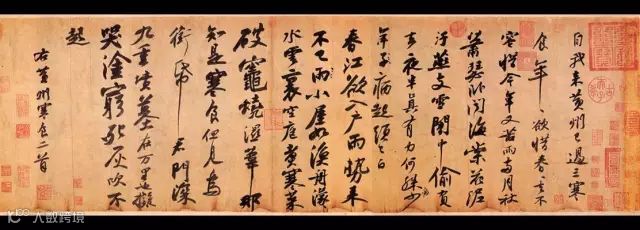 自我來黃州已過三寒
食年々欲惜春々去不
容惜今年又苦雨兩月秋
蕭瑟卧聞海棠花泥
汙燕支雪闇中偷負
去夜半真有力何殊病少
年子病起頭已白
春江欲入戶雨勢來
不已雨小屋如漁舟濛々
水雲裏空庖煮寒菜
破竈燒濕葦那
知是寒食但見烏
銜帋君門深
九重墳墓在万里也擬
哭塗窮死灰吹不
起
右黃州寒食二首
大数跨境